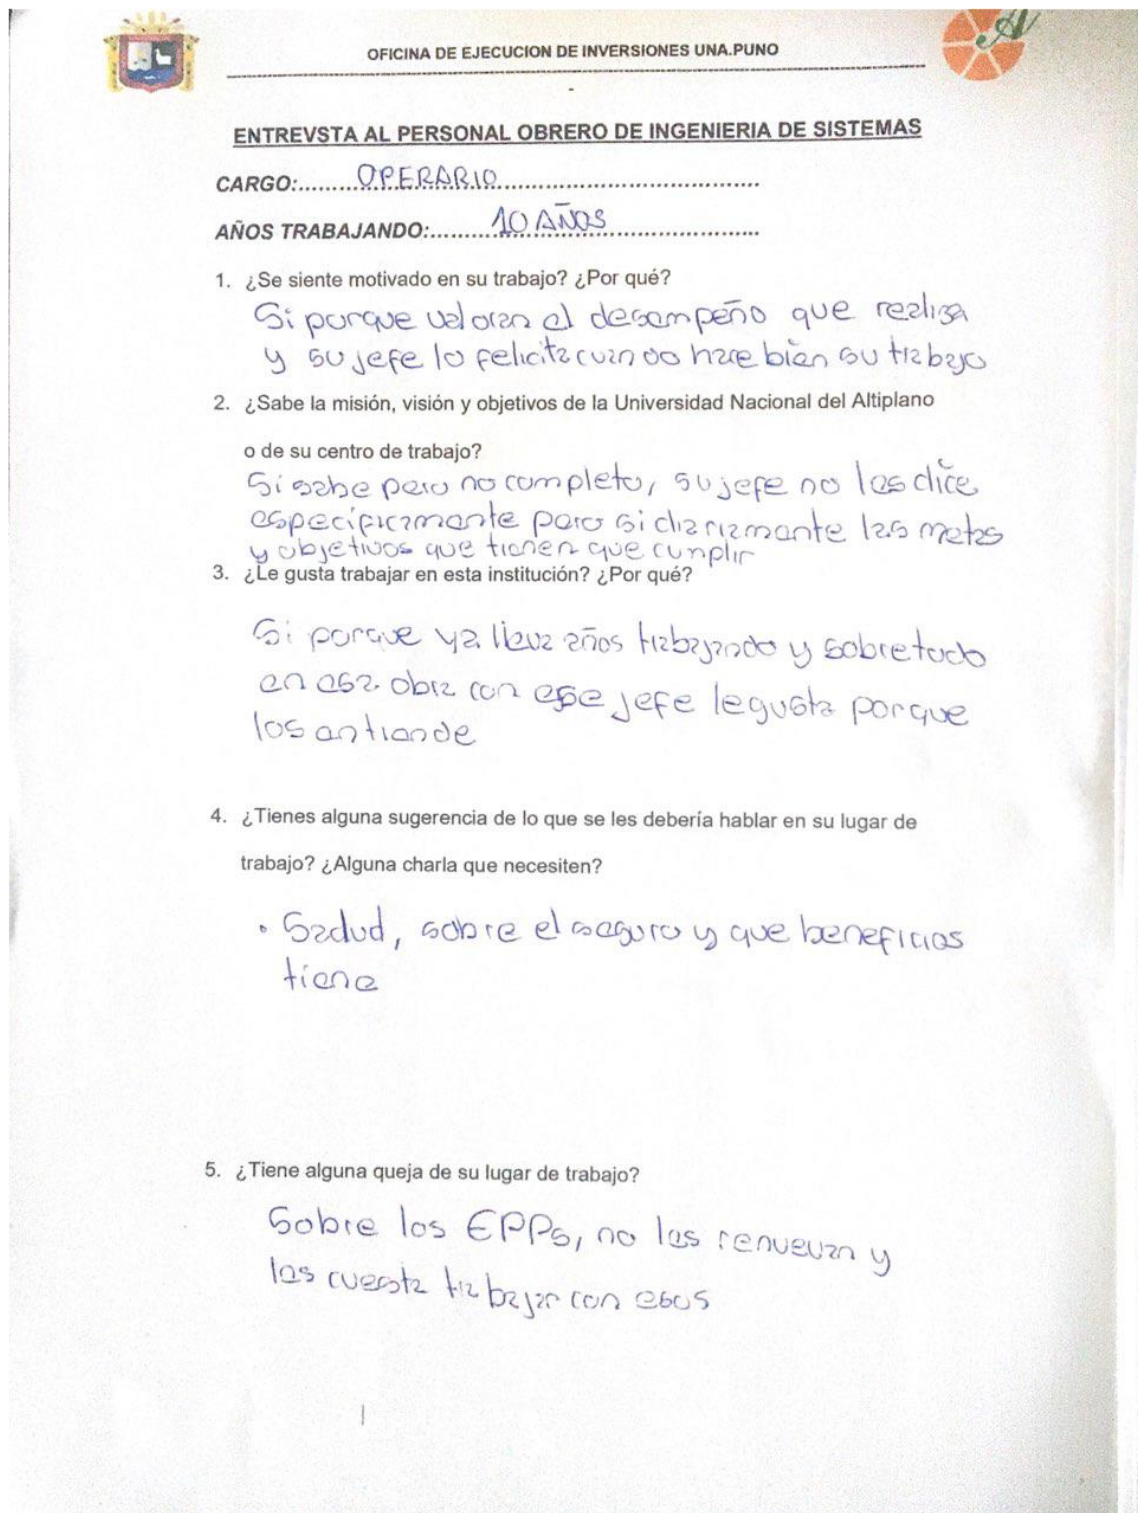 OFICINA DE EJECUCION DE INVERSIONES UNA.PUNO
ENTREVSTA AL PERSONAL OBRERO DE INGENIERIA DE SISTEMAS
CARGO:.........OPERARIO.............................................
AÑOS TRABAJANDO:.........10 AÑOS.............................
1. ¿Se siente motivado en su trabajo? ¿Por qué?
Si porque valoran el desempeño que realiza
y su jefe lo felicita cuando hace bien su trabajo
2. ¿Sabe la misión, visión y objetivos de la Universidad Nacional del Altiplano
o de su centro de trabajo?
Si sabe pero no completo, su jefe no les dice
especificamente pero si diariamente las metas
y objetivos que tienen que cumplir
3. ¿Le gusta trabajar en esta institución? ¿Por qué?
Si porque ya lleva años trabajando y sobretodo
en esa obra con ese jefe le gusta porque
los entiende
4. ¿Tienes alguna sugerencia de lo que se les debería hablar en su lugar de
trabajo? ¿Alguna charla que necesiten?
• Salud, sobre el seguro y que beneficios
tiene
5. ¿Tiene alguna queja de su lugar de trabajo?
Sobre los EPPs, no les renuevan y
les cuesta trabajar con esos